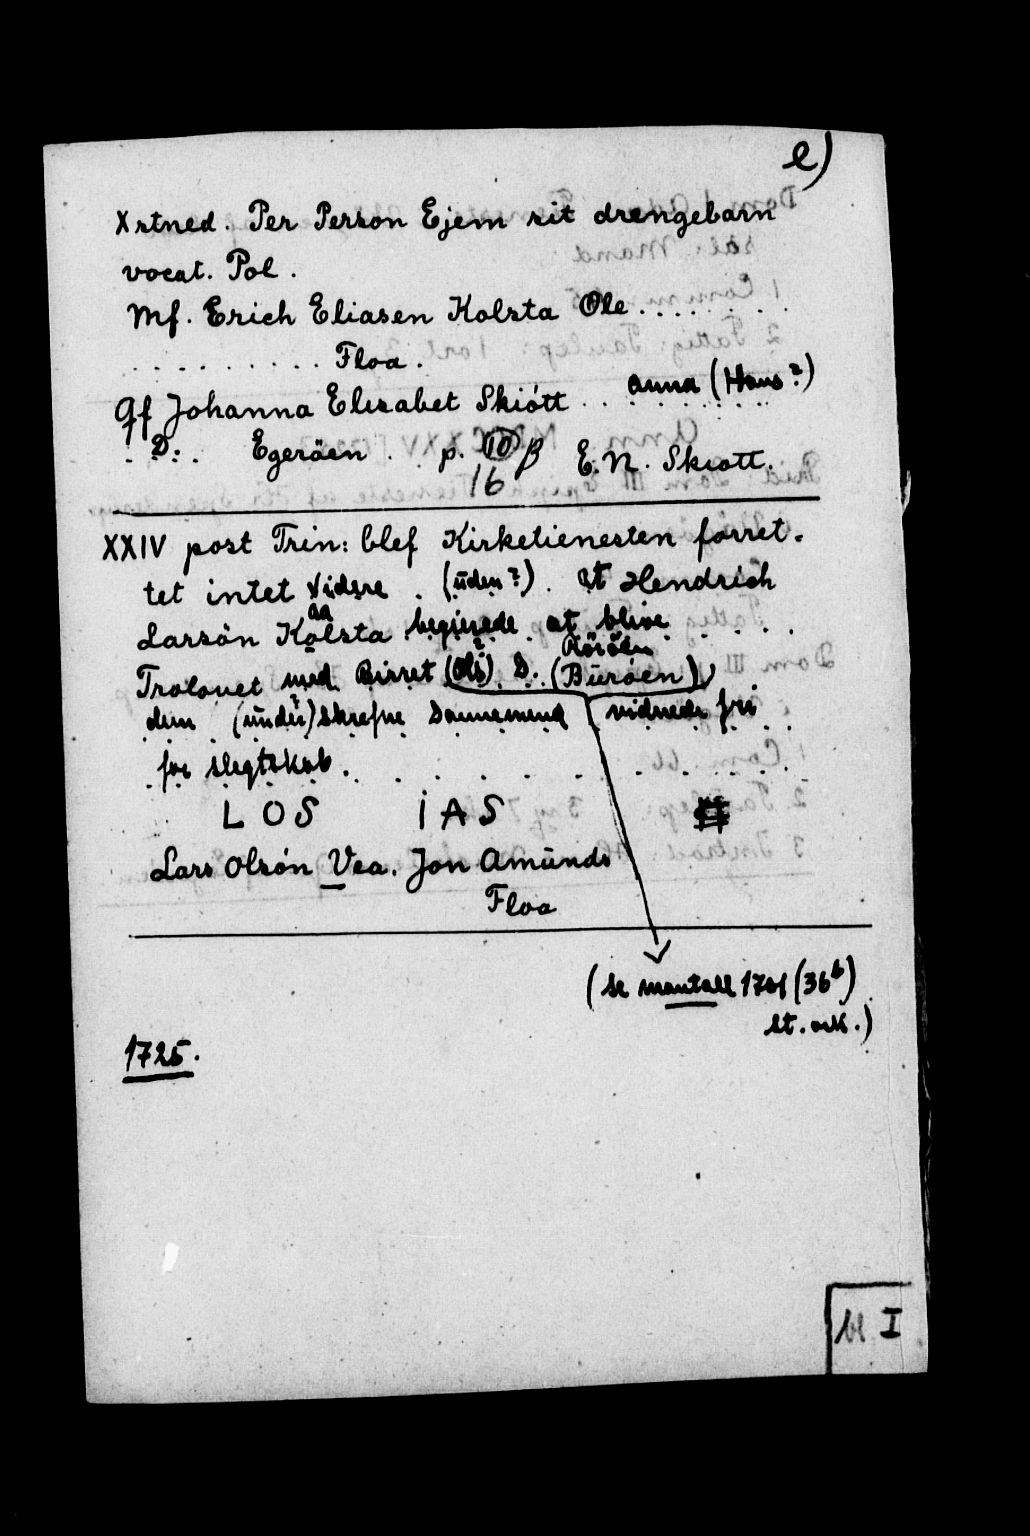 e)
Xstned. Per Person Ejem sit drængebarn
vocat. Pol.
Mf. Erich Eliasen Kolsta Ole . . . . . . .
. . . . . . . . . . Floa.
qf Johanna Elisabet Skiött . . anna (Hans?)
. D: . Egeröen . . p. 10 β E. N. Skiött.
16
XXIV post Trin: blef Kirketienesten forret-
tet intet vidsre . (ūden?) . at Hendrich
aa
Larsön Kolsta begierede at blive . . . .
Rösöen
Trolovet med Birret (Ols?) D. (Būröen)
dem (ūnder?) skrefne Dannemend vidnede fri
for slegtskab. . . . . . . . . .
L O S I A S #
Lars Olsón Vea. Jon Amūnds
Floa
(se mantall 1701 (36b)
st. ark.)
1725.
bl I